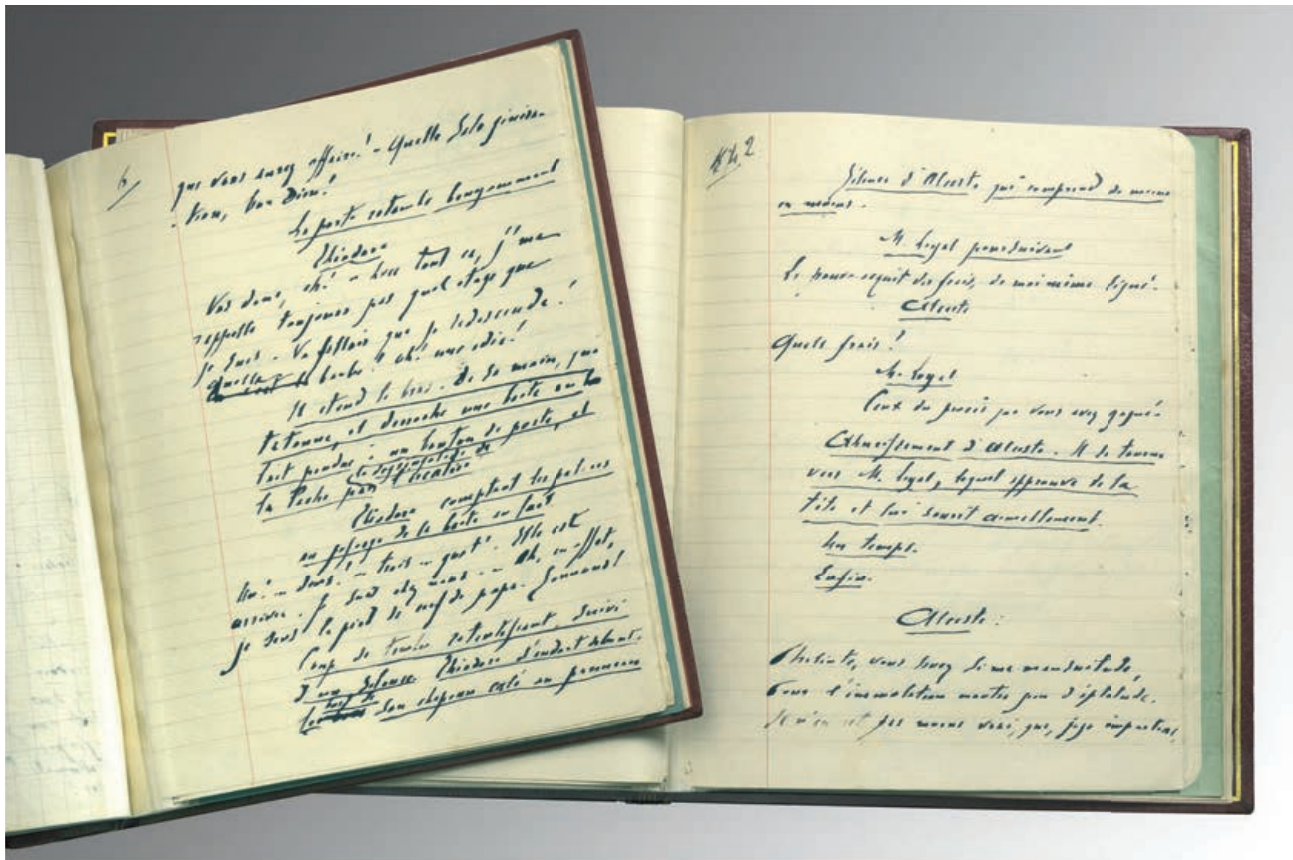 6/
que vous aurez affaire! – Quelle sale généra-
tion, bon Dieu!
La porte retombe bruyamment
Théodore
Vas donc, eh! – Avec tout ça, j'me
rappelle toujours pas quel étage que
je suis. – Va falloir que je redescende!
Quelle barbe! Ah! une idée!
Il étend le bras. De sa main, qui
tâtonne, il décroche une boîte au
lait pendue à un bouton de porte, et
la lâche
de l'escalier
Théodore comptant les paliers
au passage de la boîte au lait
Un! – deux! – trois – quat'! Elle est
arrivée. Je suis chez nous. – Ah, en effet,
je sens le pied de cerf de papa. Sonnons!
Coup de timbre retentissant, suivi
d'un silence. Théodore s'endort debout,
son chapeau calé au panneau
2
Silence d'Alceste, qui comprend de moins
en moins.
M. Loyal poursuivant
Le pourvoi des frais, de moi-même signé.
Alceste
Quels frais?
M. Loyal
Ceux du procès que vous avez gagné.
Ahurissement d'Alceste. Il se tourne
vers M. Loyal, lequel approuve de la
tête et lui sourit aimablement.
Un temps.
Enfin.
Alceste:
Philinte, vous savez si ma mansuétude,
Pour l'immolation montre peu d'aptitude.
Il n'en est pas moins vrai, que, juge impartial,